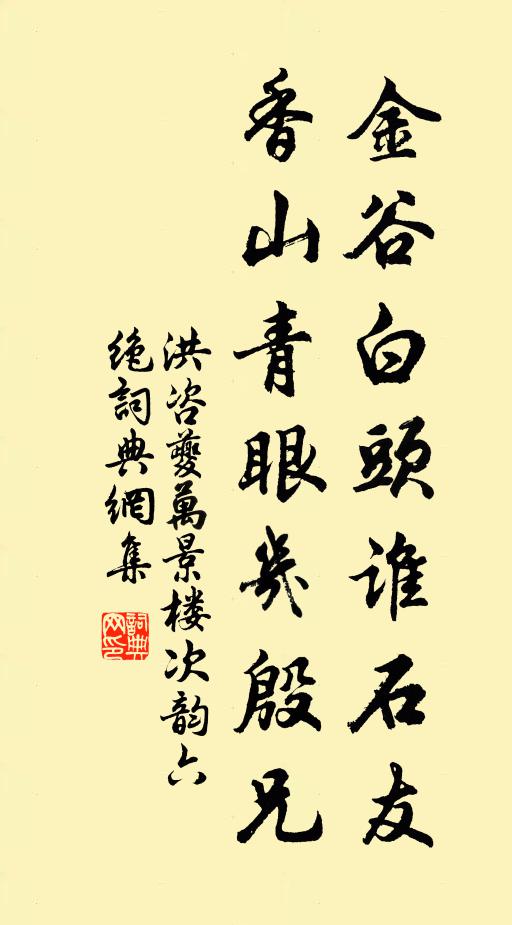 金谷白頭谁石友
香山青眼幾殷兄
洪咨夔萬景楼次韵六
绝詞典網集
詞典
网印